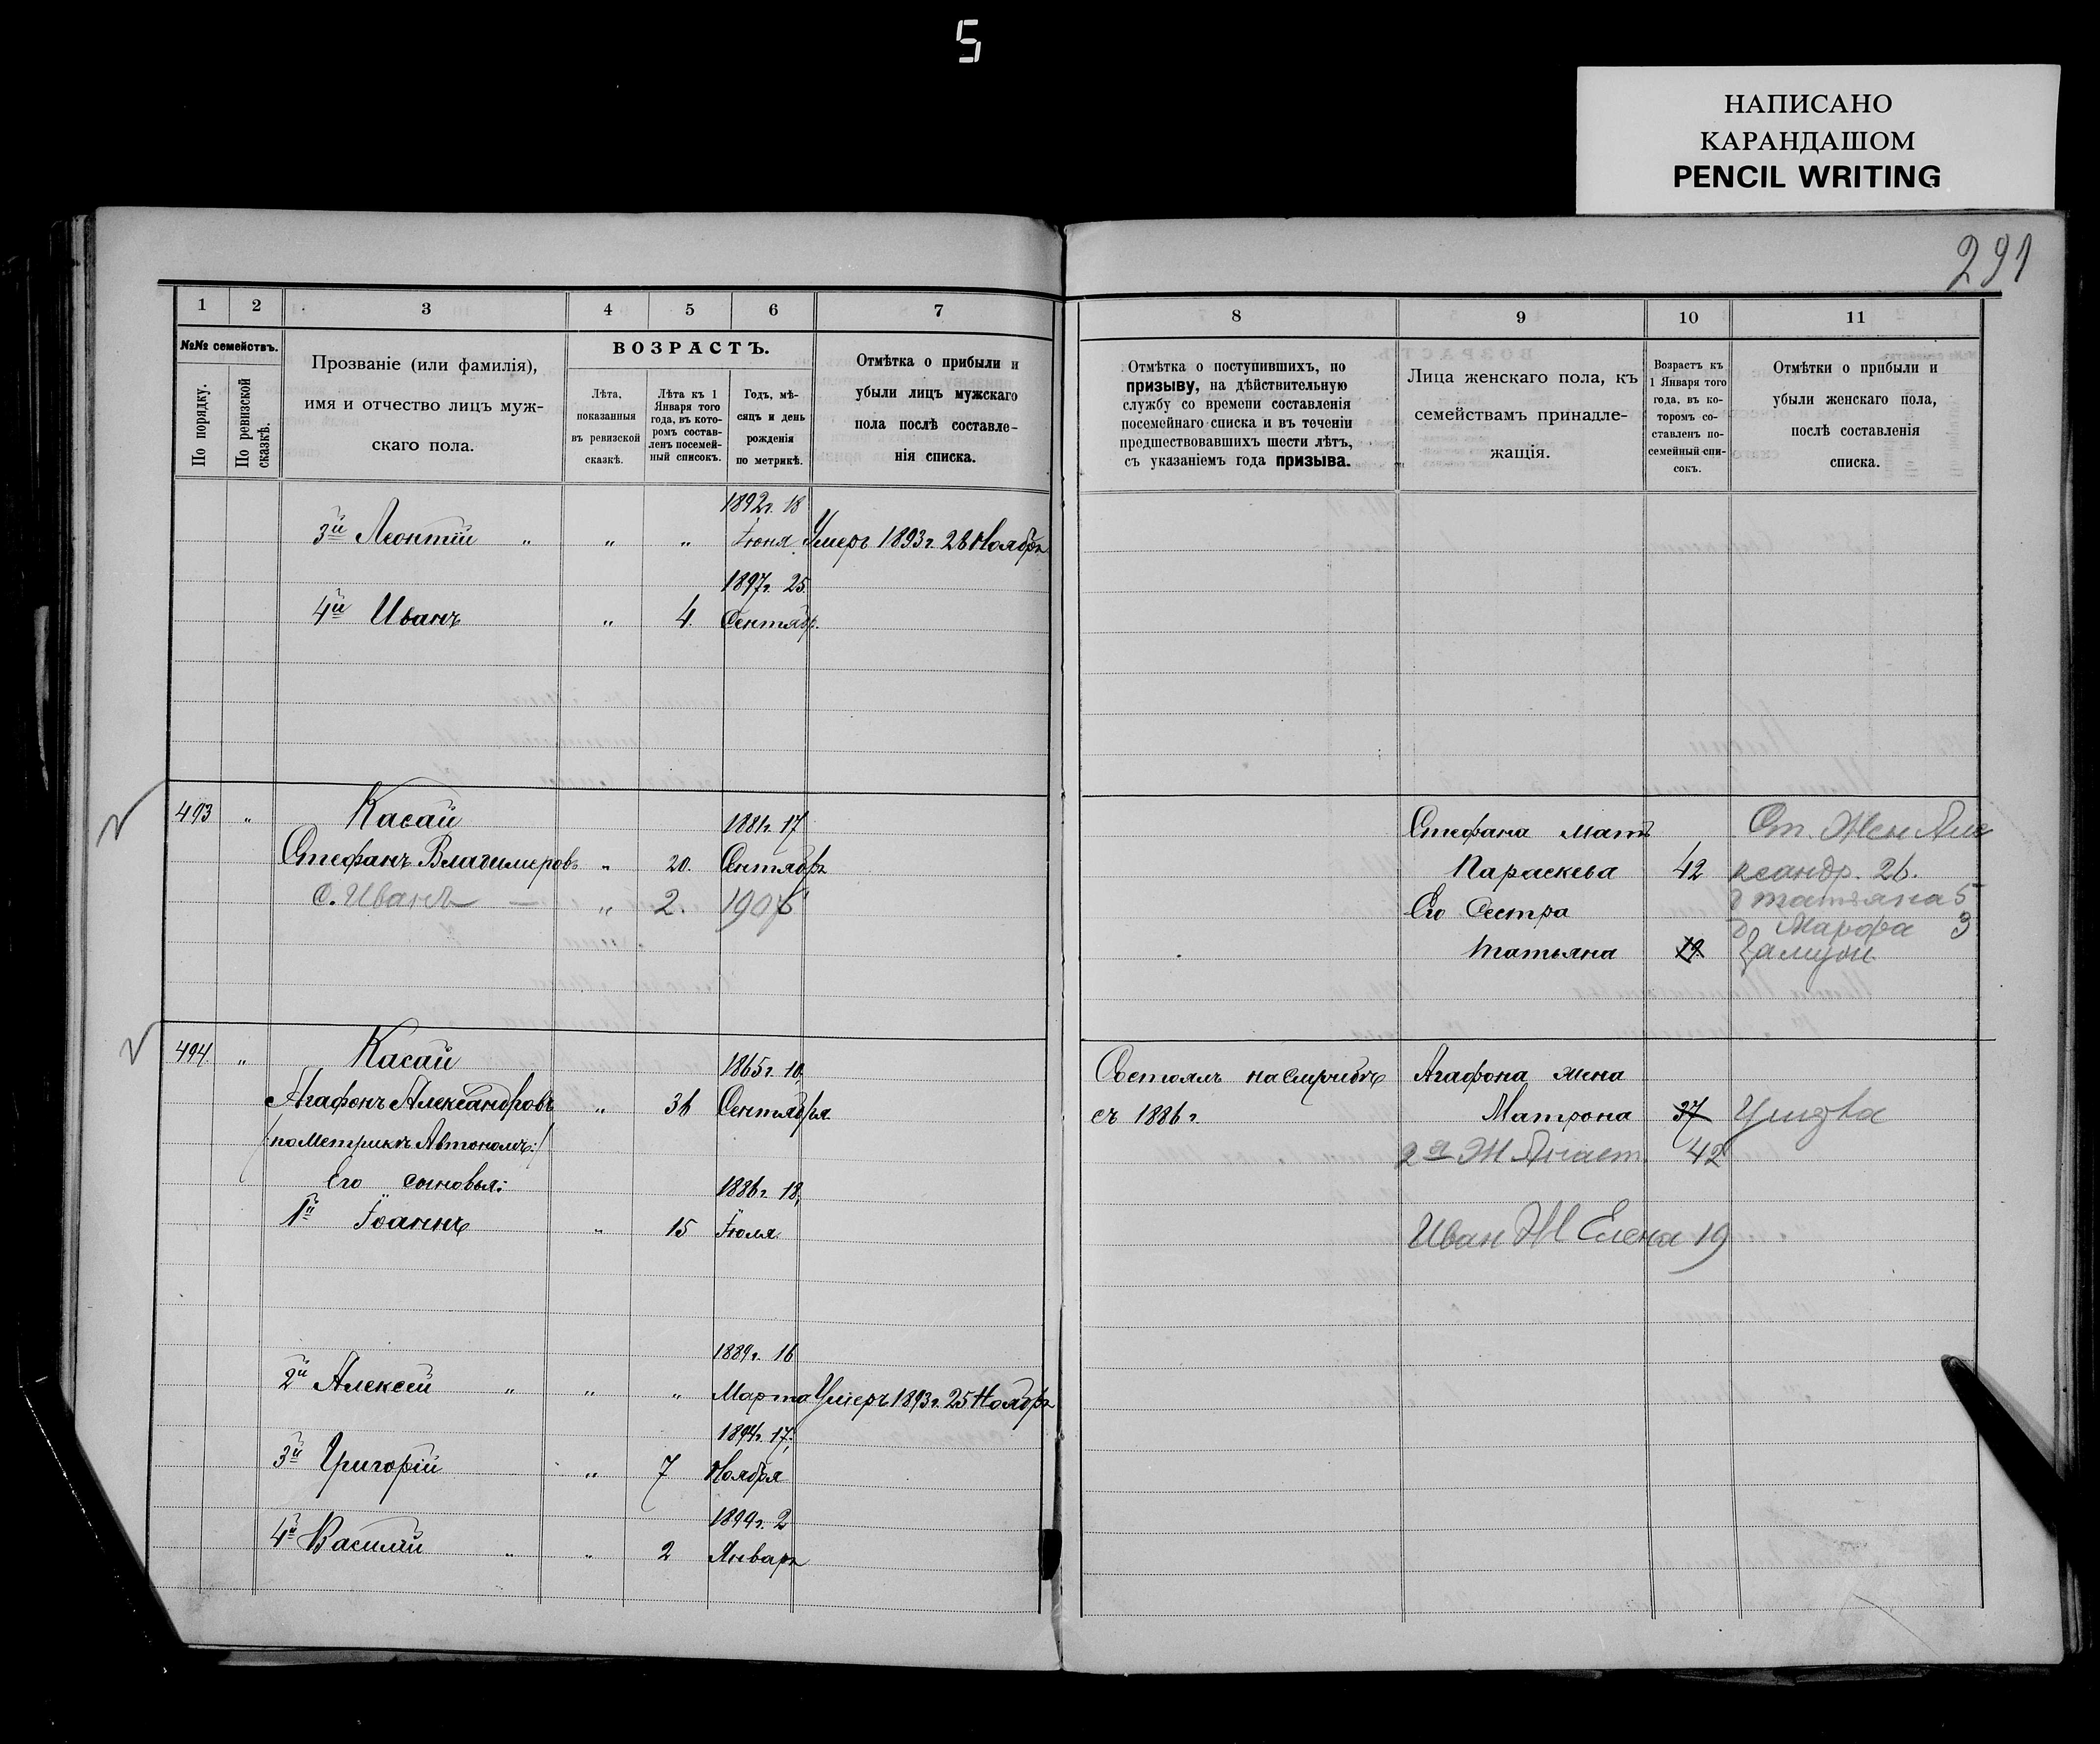 5
НАПИСАНО
КАРАНДАШОМ
PENCIL WRITING
291
1 2 3 4 5 6 7
№№ семействъ.
По порядку.
По ревизской сказкѣ.
Прозваніе (или фамилія),
имя и отчество лицъ муж-
скаго пола.
ВОЗРАСТЪ.
Лѣта,
показанныя
въ ревизской
сказкѣ.
Лѣта къ 1
Января того
года, въ кото-
ромъ состав-
ленъ посемей-
ный списокъ.
Годъ, мѣ-
сяцъ и день
рожденія
по метрикѣ.
Отмѣтка о прибыли и
убыли лицъ мужскаго
пола послѣ составле-
нія списка.
1892 г. 18
3й Леонтій " " " Іюня Умеръ 1893 г. 26 Ноябрь
1897 г. 25
4й Иванъ " 4. Сентябр.
493 " Касай 1881 г. 17
Стефанъ Владимеровъ " 20. Сентябрь
с. Иванъ — " 2. 1906
494. " Касай 1865 г. 10
Агафонъ Александровъ " 36 Сентября
/по Метрикѣ Автономъ:/
Его сыновья: 1886 г. 18
1й Іоаннъ " 15 Іюля
1889 г. 16
2й Алексѣй " " " Марта Умеръ 1893 г. 25 Ноябрь
1894 г. 17
3й Григорій " 7 Ноября
1899 г. 2
4й Василій " " 2 Январь
8 9 10 11
Отмѣтка о поступившихъ, по
призыву, на дѣйствительную
службу со времени составленія
посемейнаго списка и въ теченіи
предшествовавшихъ шести лѣтъ,
съ указаніемъ года призыва.
Лица женскаго пола, къ
семействамъ принадле-
жащія.
Возрастъ къ
1 Января того
года, въ ко-
торомъ со-
ставленъ по-
семейный спи-
сокъ.
Отмѣтки о прибыли и
убыли женскаго пола,
послѣ составленія
списка.
Стефана мать Ст. Жен Але
Параскева 42 ксандр. 26.
д татьяна 5
Его Сестра
д Марфа 3
Татьяна 19. Замуж
Состоялъ на службѣ Агафона жена
съ 1886 г. Матрона 37
2я Ж Анаст. 42
Иван Ж Елена 19